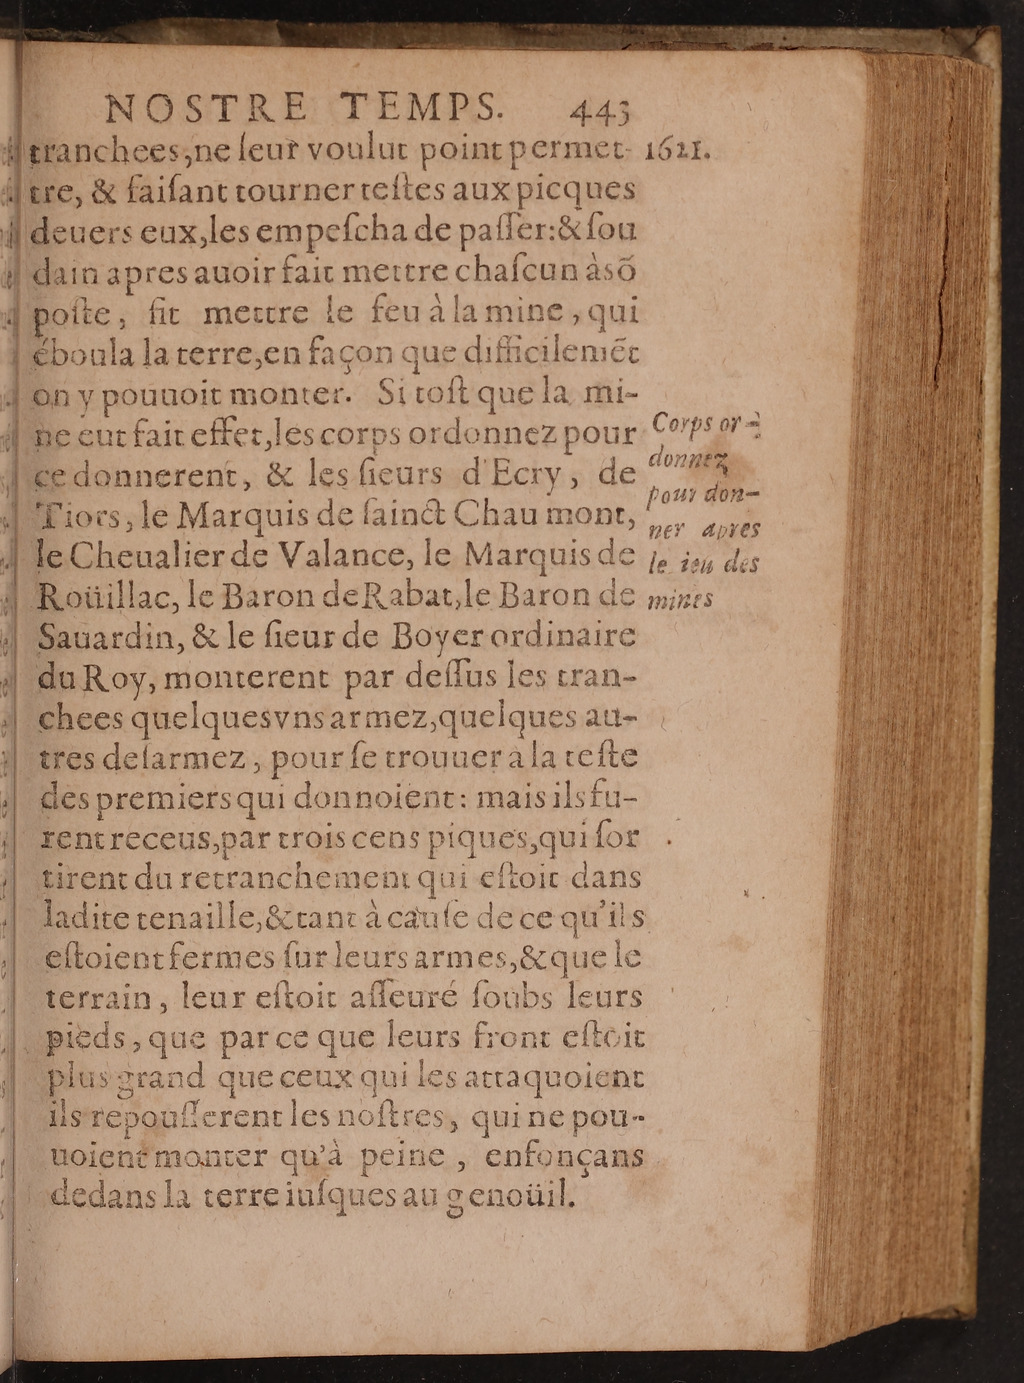 NOSTRE TEMPS. 443
tranchees,ne leur voulut point permet- 1621.
tre, & faiſant tourner teſtes aux picques
deuers eux,les empeſcha de paſſer:&ſou
dain apres auoir fait mettre chaſcun àsõ
poſte, fit mettre le feu à la mine, qui
éboula la terre,en façon que difficilemẽt
on y pouuoit monter. Si toſt que la mi-
ne eut fait effet,les corps ordonnez pour
ce donnerent, & les ſieurs d'Ecry, de
Tiors, le Marquis de ſainct Chaumont,
le Cheualier de Valance, le Marquis de
Roüillac, le Baron de Rabat,le Baron de
Sauardin, & le ſieur de Boyer ordinaire
du Roy, monterent par deſſus les tran-
chees quelques vns armez,quelques au-
tres deſarmez, pour ſe trouuer à la teſte
des premiers qui donnoient: mais ils fu-
rent receus,par trois cens piques,qui ſor
tirent du retranchement qui eſtoit dans
ladite tenaille,&tant à cauſe de ce qu'ils
eſtoient fermes ſur leurs armes,& que le
terrain, leur eſtoit aſſeuré ſoubs leurs
pieds, que par ce que leurs front eſtoit
plus grand que ceux qui les attaquoient
ils repouſſerent les noſtres, qui ne pou-
uoient monter qu'à peine, enfonçans
dedans la terre iuſques au genoüil.
Corps or-
donnez
pour don-
ner apres
le ieu des
mines